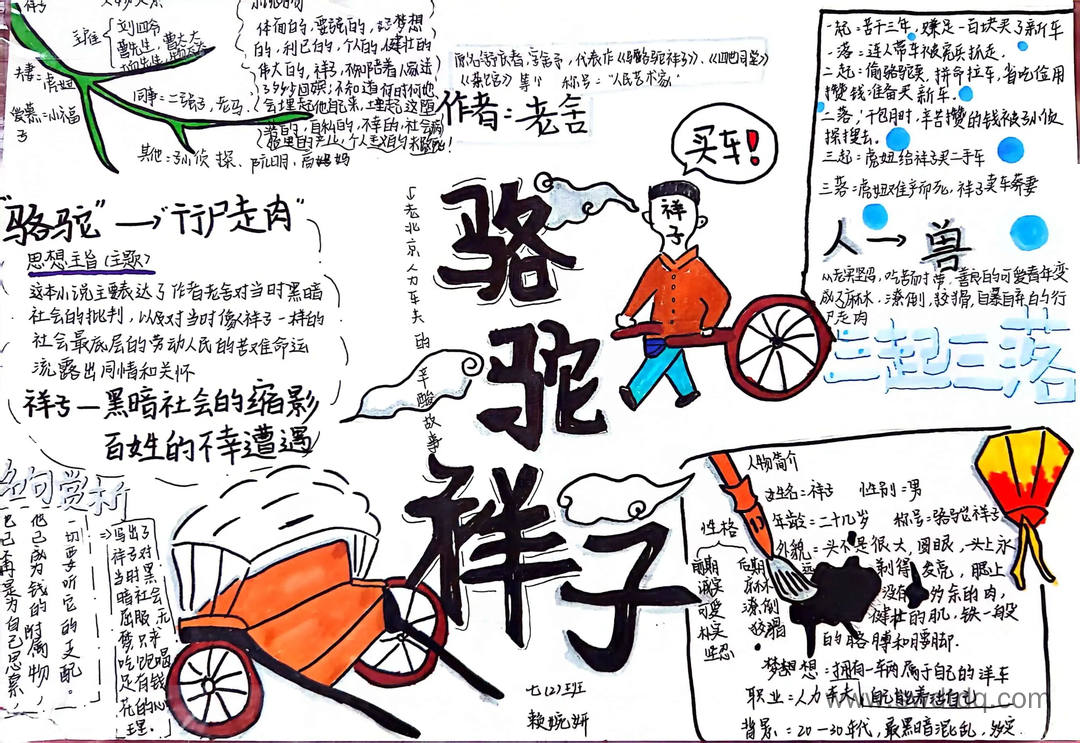 主雇
刘四爷
曹先生,曹太太
夫妻:虎妞
爱慕:小福
子
同事:二强子,老马
其他:孙侦探、阮明、高妈妈
体面的,要强的,好梦想
的,利己的,个人的,健壮的
伟大的,祥子,不知陪着人家送
了多少回殡;不知道何时何地
会埋起他自己来,埋起这堕
落的,自私的,不幸的,社会病
胎里的产儿,个人主义的末路鬼!
原名舒庆春,字舍予,代表作《骆驼祥子》、《四世同堂》
《茶馆》等 称号:“人民艺术家”
作者:老舍
买车!
祥子
骆驼祥子
老北京人力车夫的
辛酸故事
一起:苦干三年,赚足一百块买了新车
一落:连人带车被宪兵抓走
二起:偷骆驼卖,拼命拉车,省吃俭用
攒钱准备买新车。
二落:干包月时,辛苦攒的钱被孙侦
探搜去。
三起:虎妞给祥子买二手车
三落:虎妞难产而死,祥子卖车葬妻
人→兽
从老实坚毅,吃苦耐劳,善良的可爱青年变
成了麻木,潦倒,狡猾,自暴自弃的行
尸走肉
三起三落
“骆驼”→“行尸走肉”
思想主旨(主题)
这本小说主要表达了作者老舍对当时黑暗
社会的批判,以及对当时像祥子一样的
社会最底层的劳动人民的苦难命运
流露出同情和关怀
祥子—黑暗社会的缩影
百姓的不幸遭遇
名句赏析
一切要听它的支配。
他已成为钱的附属物,
自己不再是为自己思索,
⇒写出了
祥子对
当时黑
暗社会
屈服,无
梦只求
吃饱喝
足有钱
花的心
理。
七(2)班
赖婉妍
人物简介
姓名:祥子 性别:男
年龄:二十几岁 称号:骆驼祥子
外貌:头不是很大,圆眼,头上永
远剃得发亮,腮上
没有多余的肉,
健壮的肌,铁一般
的胳膊和腰脚.
梦想:拥有一辆属于自己的洋车
职业:人力车夫
背景:20—30年代,最黑暗混乱
性格
前期
诚实
可爱
朴实
坚忍
后期
麻木
潦倒
狡猾